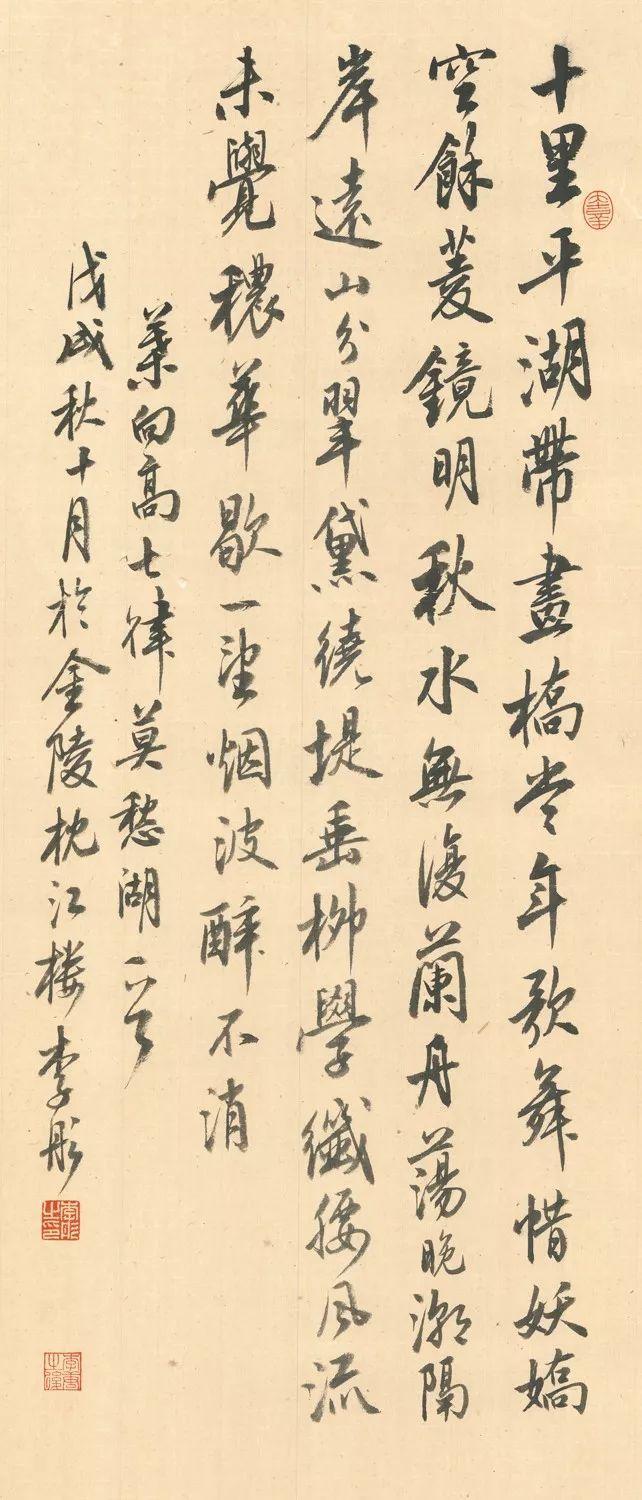 十里平湖帶畫橋當年歌舞惜妖嬌
空餘菱鏡明秋水無復蘭舟蕩晚潮隔
岸遠山分翠黛繞堤垂柳學纖腰風流
未覺穠華歇一望烟波醉不消
葉向高七律莫愁湖一首
戊戌秋十月於金陵枕江樓李彤
李彤之印